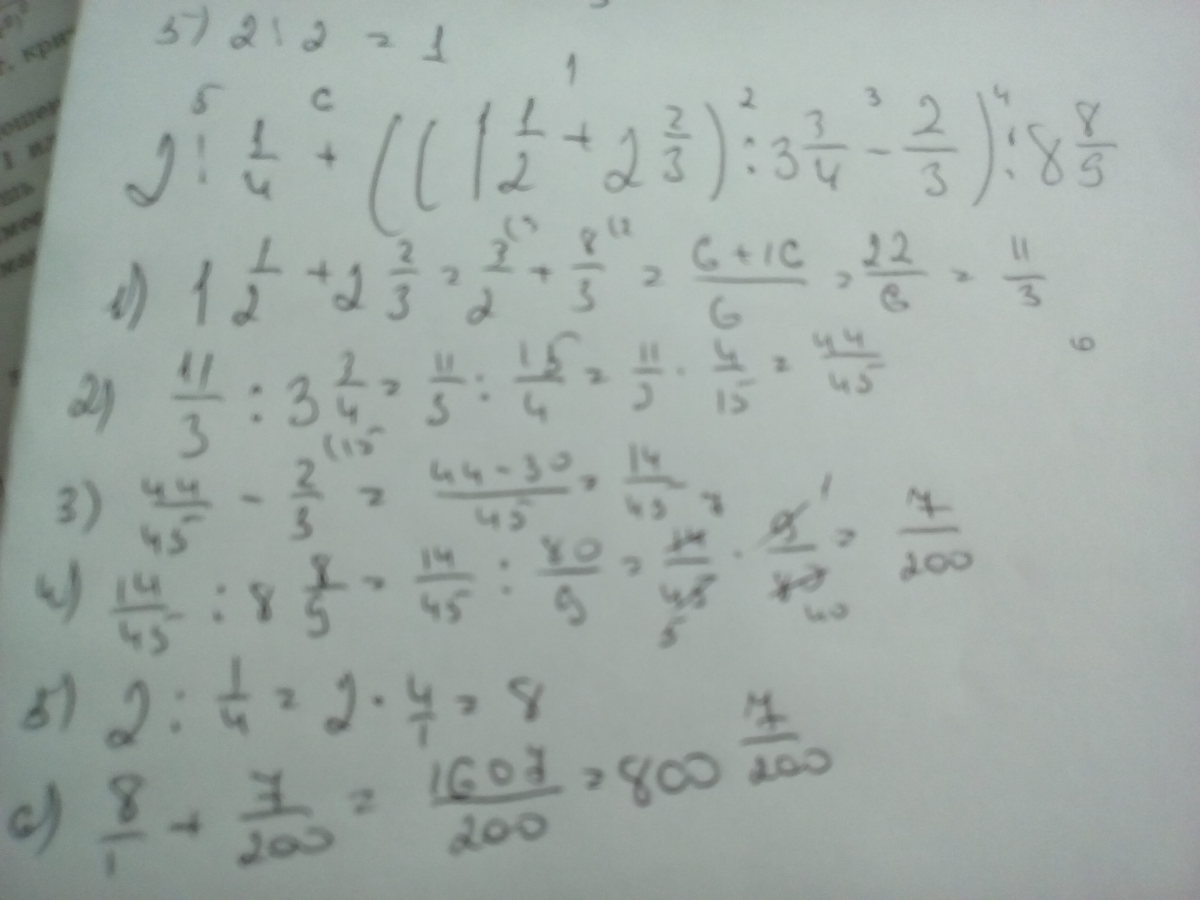 5) 2 : 2 = 1
2 : 1/4 + ((1 1/2 + 2 2/3) : 3 3/4 - 2/3) : 8 8/9
1) 1 1/2 + 2 2/3 = 3/2 + 8/3 = (6+16)/6 = 22/6 = 11/3
2) 11/3 : 3 3/4 = 11/3 : 15/4 = 11/3 · 4/15 = 44/45
3) 44/45 - 2/3 = (44-30)/45 = 14/45
4) 14/45 : 8 8/9 = 14/45 : 80/9 = 14/45 · 9/80 = 7/200
5) 2 : 1/4 = 2 · 4/1 = 8
6) 8/1 + 7/200 = 1607/200 = 800 7/200